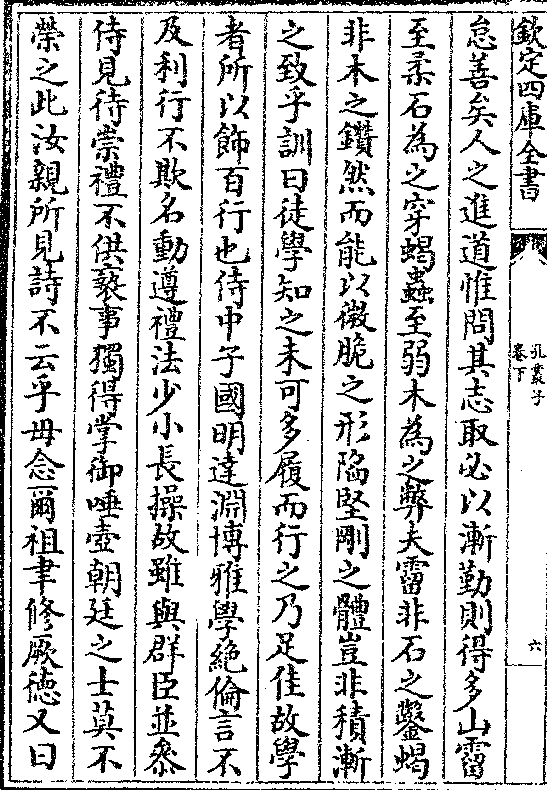 欽定四庫全書
孔叢子
卷下
六
怠善矣人之進道惟問其志取必以漸勤則得多山霤
至柔石為之穿蝎蟲至弱木為之弊夫霤非石之鑿蝎
非木之鑽然而能以微脆之形陷堅剛之體豈非積漸
之致乎訓曰徒學知之未可多履而行之乃足佳故學
者所以飾百行也侍中子國明達淵博雅學絶倫言不
及利行不欺名動遵禮法少小長操故雖與群臣並叅
侍見待崇禮不供褻事獨得掌御唾壺朝廷之士莫不
榮之此汝親所見詩不云乎毋念爾祖聿修厥德又曰